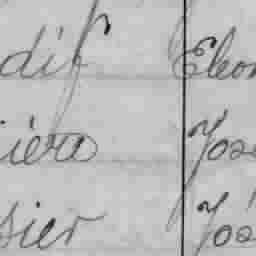 dif Eleon
ière Jos
sier Jos